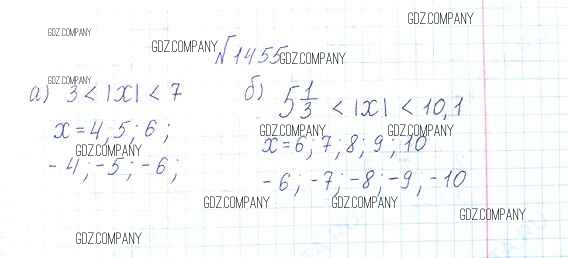 GDZ.COMPANY
GDZ.COMPANY
GDZ.COMPANY
№1455 GDZ.COMPANY
GDZ.COMPANY
а) 3 < |x| < 7
x = 4, 5; 6;
GDZ.COMPANY
-4; -5; -6;
б) 5 1/3 < |x| < 10,1
GDZ.COMPANY GDZ.COMPANY
x = 6; 7; 8; 9; 10
-6; -7; -8; -9, -10
GDZ.COMPANY GDZ.COMPANY
GDZ.COMPANY
GDZ.COMPANY